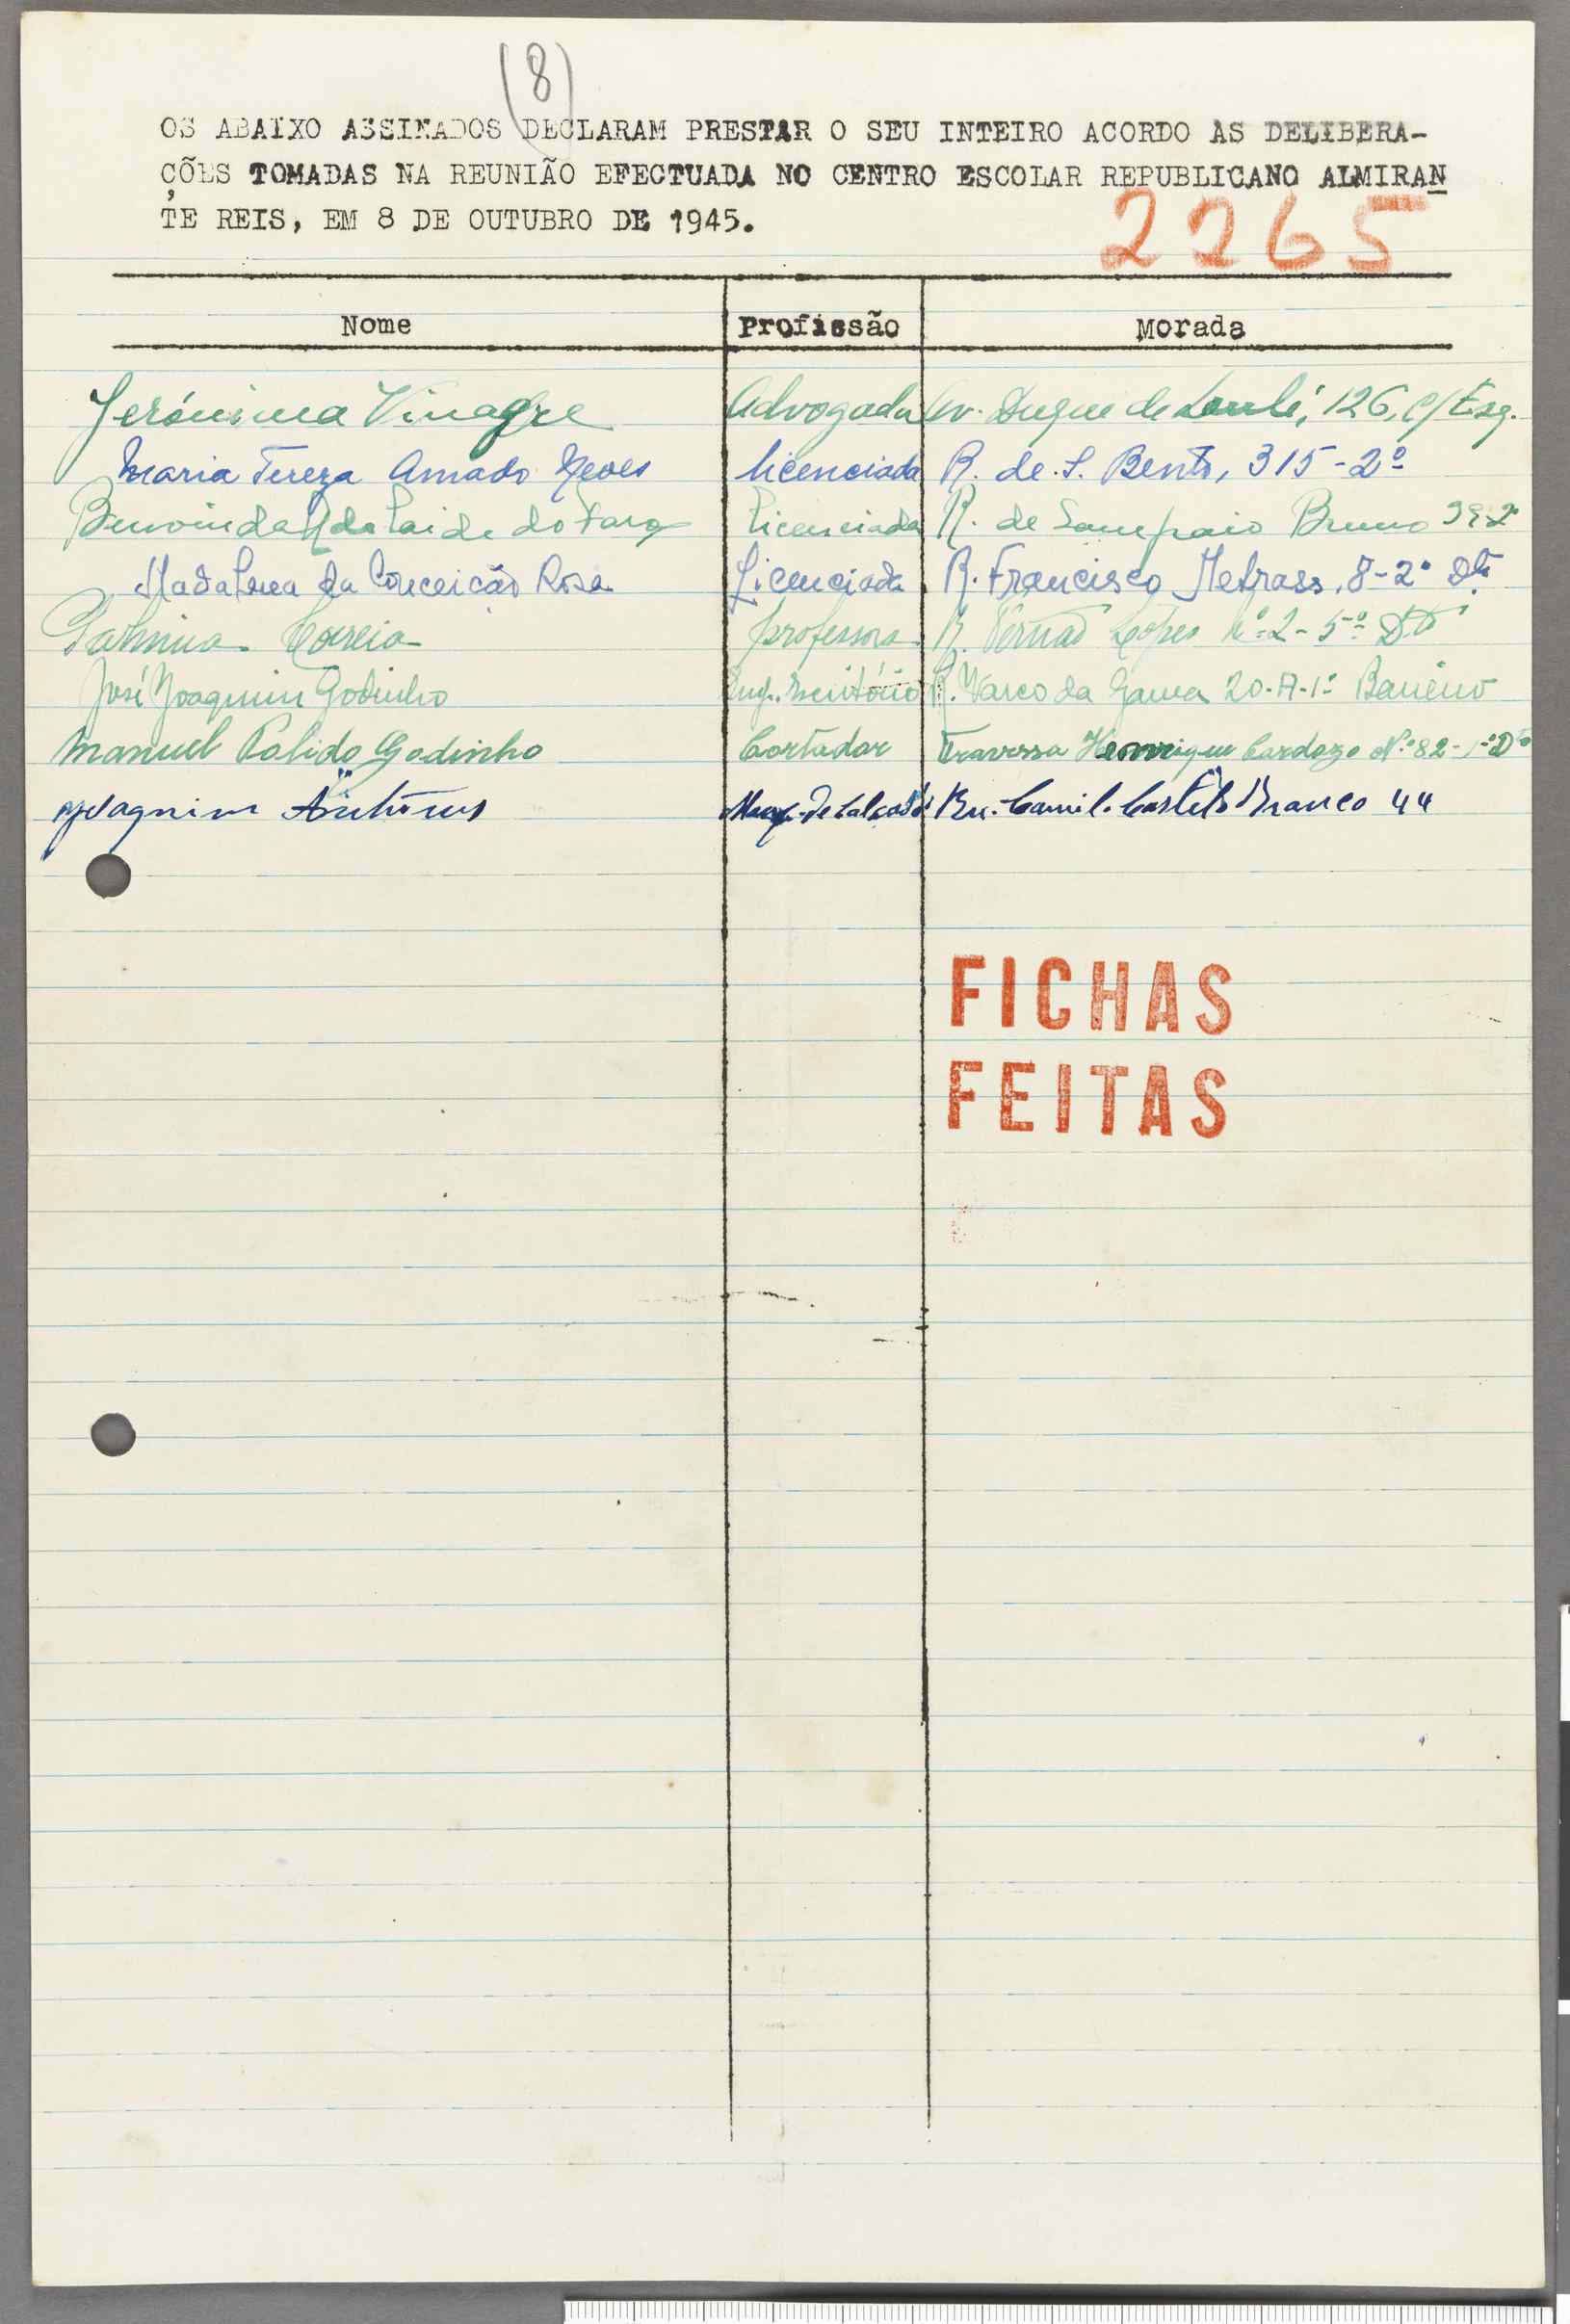 (8)
OS ABAIXO ASSINADOS DECLARAM PRESTAR O SEU INTEIRO ACORDO AS DELIBERA-
ÇÕES TOMADAS NA REUNIÃO EFECTUADA NO CENTRO ESCOLAR REPUBLICANO ALMIRAN
TE REIS, EM 8 DE OUTUBRO DE 1945.
2265
Nome Profissão Morada
Jerónima Vinagre Advogada Av. Duque de Loulé, 126, c/ Esq.
Maria Tereza Amado Neves licenciada R. de S. Bento, 315-2º
Benvinda Adelaide do Licenciada R. de Sampaio Bruno
Madalena da Conceição Rosa Licenciada R. Francisco Metrass, 8-2º Dtº
Palmira Correia professora R. Fernão Lopes nº 2-5º Dtº
José Joaquim Godinho Emp. Escritório R. Vasco da Gama 20-A-1º Barreiro
Manuel Polido Godinho Cortador Travessa Henrique Cardozo Nº 82-1º Dto
Joaquim António de Calçado Camilo Castelo Branco 44
FICHAS
FEITAS